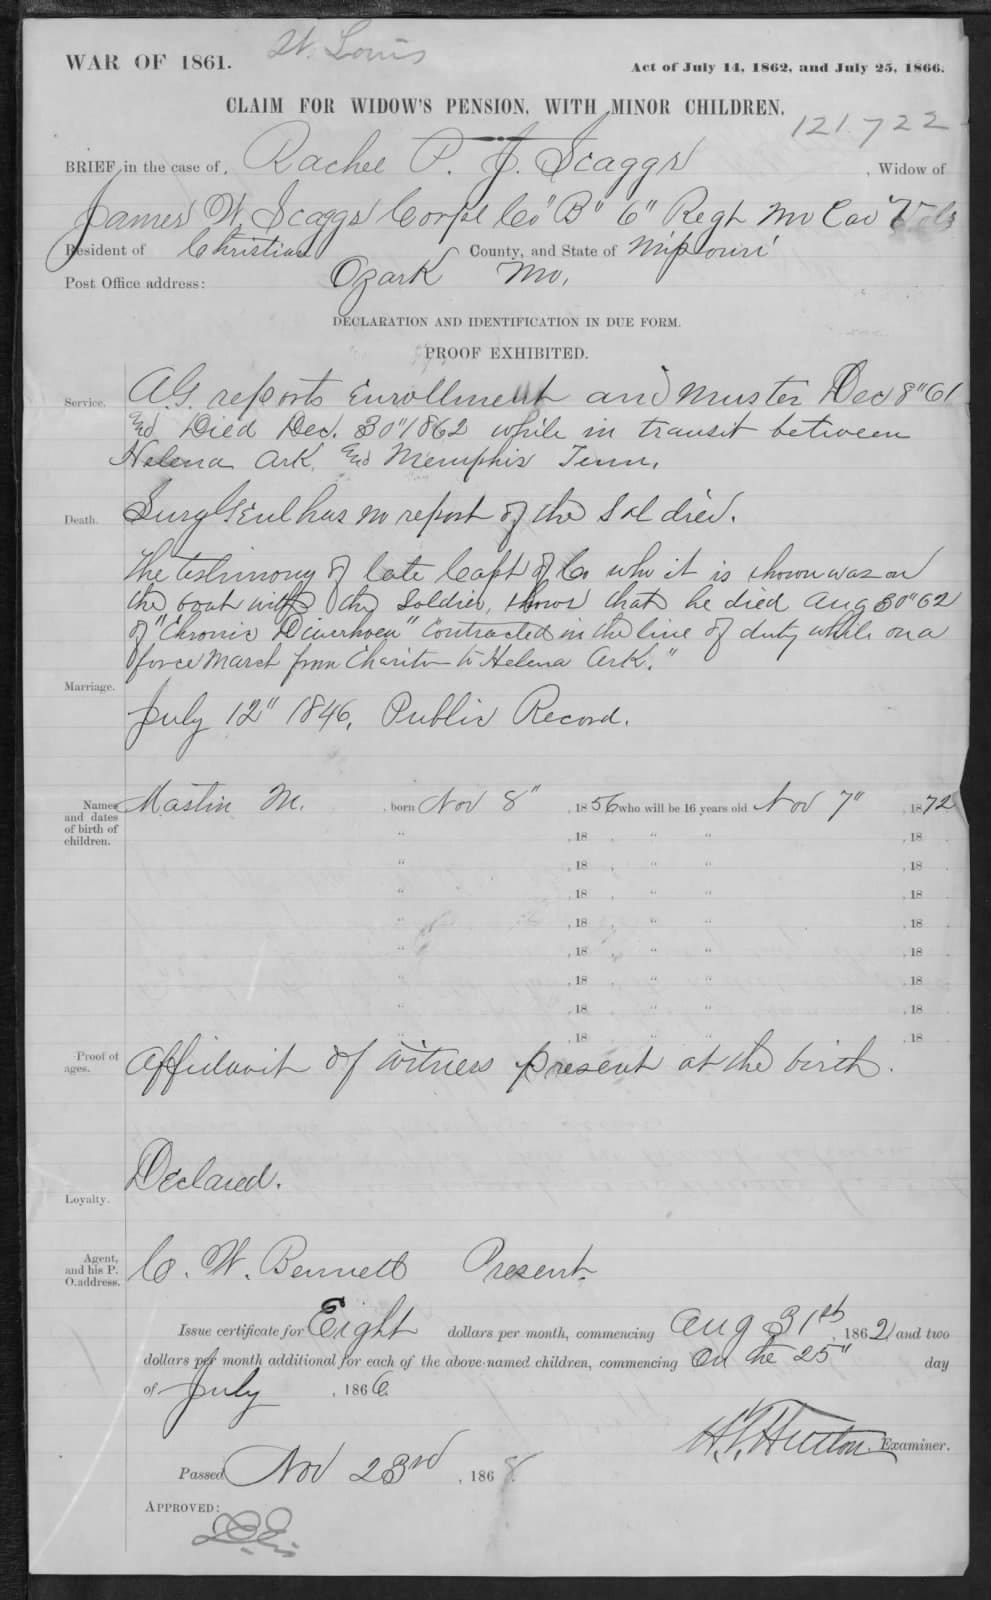 St. Louis
WAR OF 1861.
Act of July 14, 1862, and July 25, 1866.
CLAIM FOR WIDOW'S PENSION, WITH MINOR CHILDREN.
121722
BRIEF in the case of, Rachel P. J. Scaggs, Widow of
James W. Scaggs Corpl Co "B" 6" Regt Mo Cav Vols
Resident of Christian County, and State of Missouri
Post Office address: Ozark Mo.
DECLARATION AND IDENTIFICATION IN DUE FORM.
PROOF EXHIBITED.
Service. A.G. reports Enrollment and Muster Dec 8" 61
and Died Dec. 30" 1862 while in transit between
Helena Ark. and Memphis Tenn.
Death. Surg Genl has no report of the Soldier.
The testimony of late Capt of Co who it is shown was on
the boat with the Soldier, shows that he died Aug 30" 62
of "Chronic Diarrhoea" Contracted in the line of duty while on a
force March from Chariton to Helena Ark."
Marriage.
July 12" 1846, Public Record.
Names and dates of birth of children. Mastin M. , born Nov 8" , 1856 who will be 16 years old Nov 7" , 1872
" , 18 , " " , 18
" , 18 , " " , 18
" , 18 , " " , 18
" , 18 , " " , 18
" , 18 , " " , 18
" , 18 , " " , 18
" , 18 , " " , 18
" , 18 , " " , 18
Proof of ages. Affidavit of witness present at the birth.
Loyalty. Declared.
Agent, and his P. O. address. C. W. Bennett Present.
Issue certificate for Eight dollars per month, commencing Aug 31st, 1862 and two
dollars per month additional for each of the above-named children, commencing on the 25" day
of July , 1866
H. T. Hutton. Examiner.
Passed Nov 23rd , 1868
APPROVED: